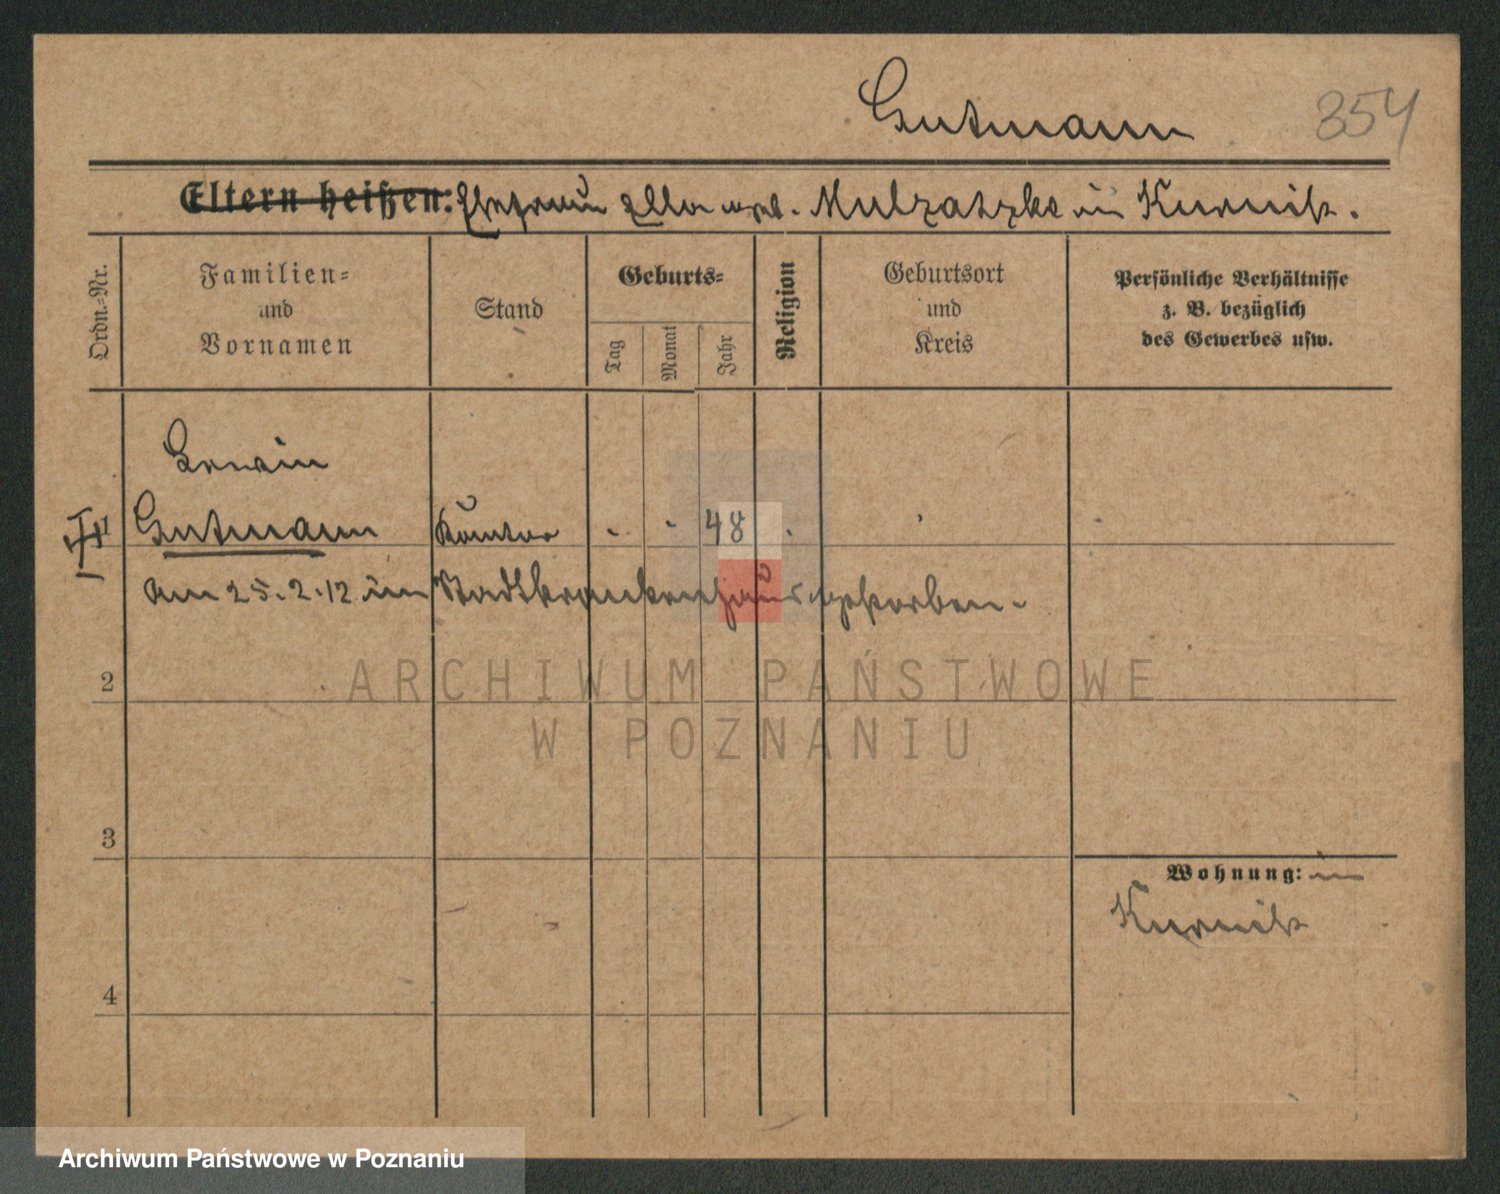 Gutmann 354
Eltern heißen: Ehefrau Ella geb. Mulzatzke in Kurnik.
Ordn.-Nr.
Familien-
und
Vornamen
Stand
Geburts-
Tag
Monat
Jahr
Religion
Geburtsort
und
Kreis
Persönliche Verhältnisse
z. B. bezüglich
des Gewerbes usw.
Erwin
1 Gutmann Kantor - - 48 -
am 25.2.12 im Stadtkrankenhaus gestorben.
2
3
Wohnung: in
Kurnik
4
ARCHIWUM PAŃSTWOWE
W POZNANIU
Archiwum Państwowe w Poznaniu